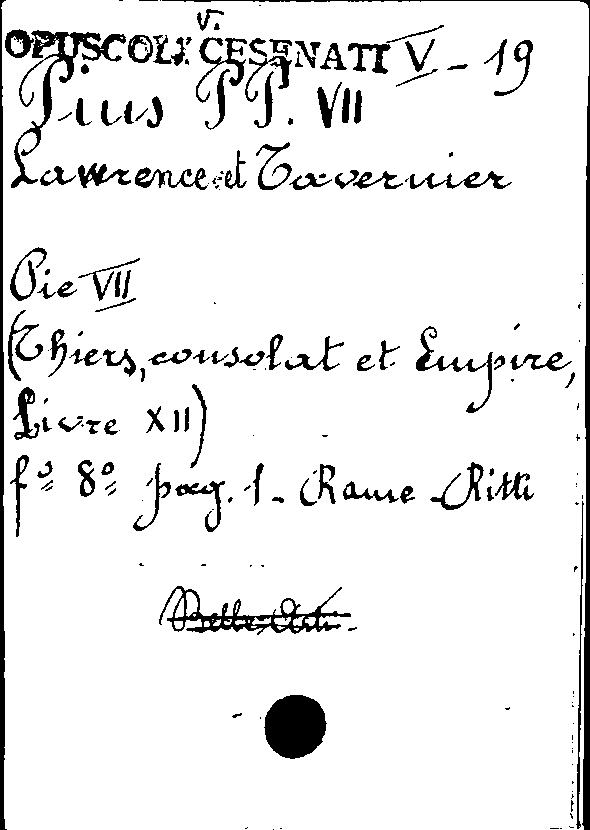 v.
OPUSCOLI CESENATI V - 19
Pius PP. VII
Lawrence et Tavernier
Pie VII
(Thiers, consolat et Empire,
Livre XII)
fº 8º pag. 1 - Rame - Ritti
Belle Arti -